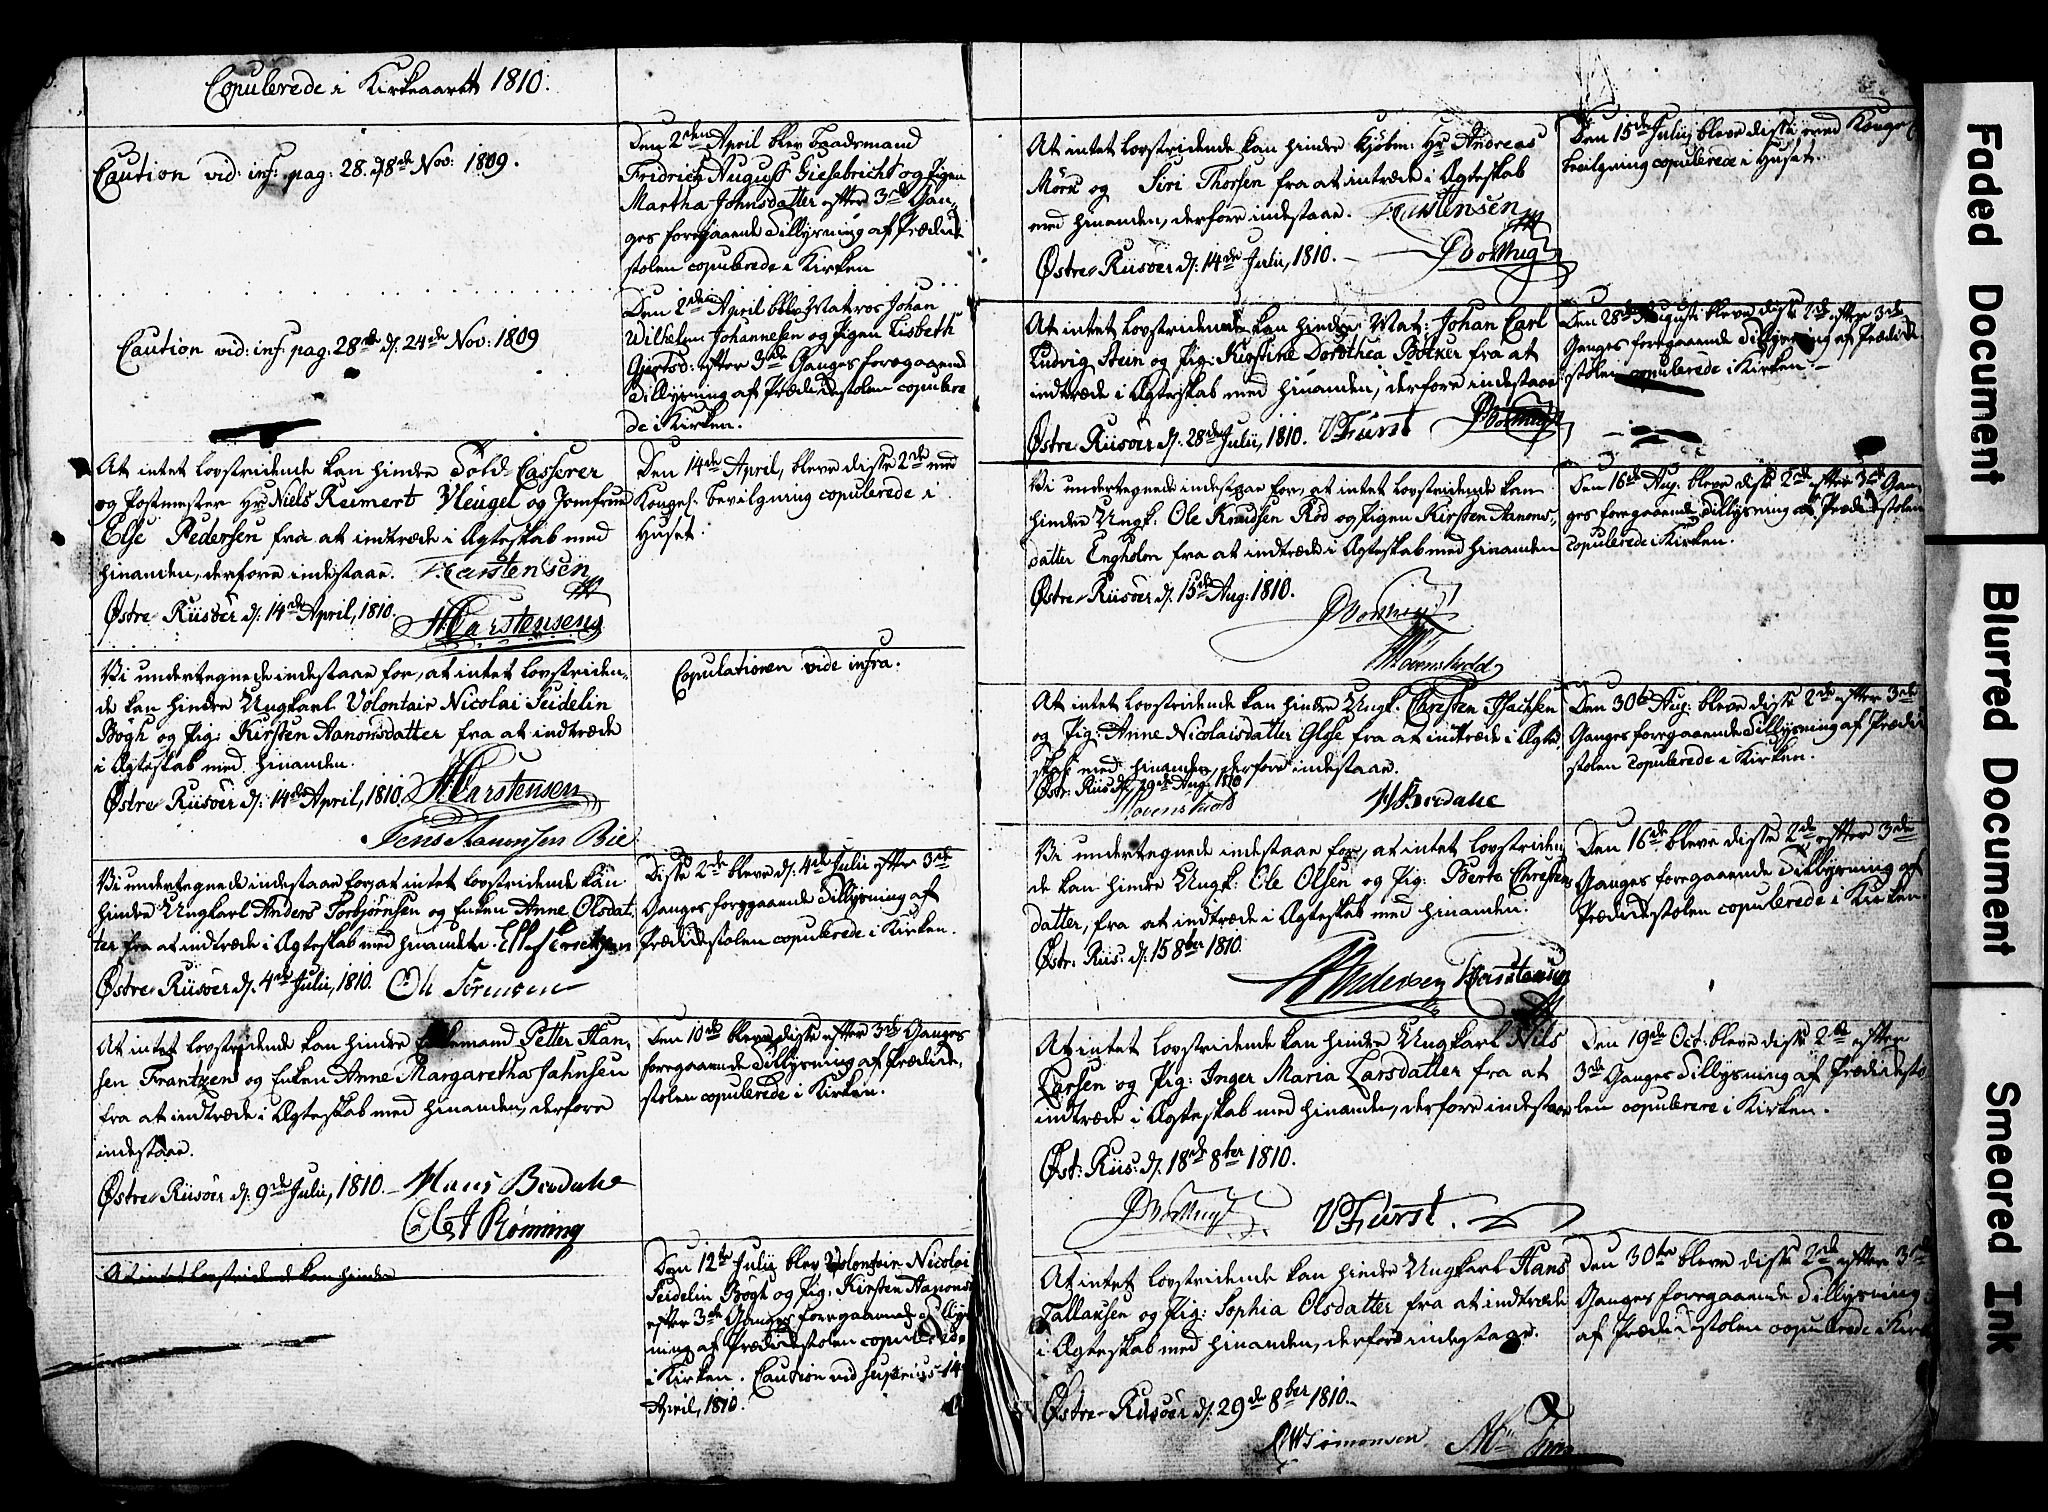 Copulerede i Kirkeaaret 1810.
Caution vid: inf: pag: 28. d. 8de Nov: 1809.
Den 2den April blev Baadsmand
Fridrich August Giesebricht og Pigen
Martha Johnsdatter efter 3de Gan-
ges foregaaende Tillysning af Prædike
stolen copulerede i Kirken
Caution vid: inf: pag: 28de d. 24de Nov: 1809
Den 2den April blev Matros Johan
Wilhelm Johannesen og Pigen Lisbeth
Giertsd: efter 3de Ganges foregaaende
Tillysning af Prædikestolen copulere
de i Kirken.
At intet lovstridende kan hindre Told Casserer
og Postmester Hr Niels Reimert Vleugel og Jomfrue
Else Pedersen fra at indtræde i Ægteskab med
hinanden, derfore indestaae. Karstensen
Østre Riisøer d. 14de April, 1810. H Carstensen
Den 14de April, bleve disse 2de med
Kongel: bevilgning copulerede i
Huset.
Vi undertegnede indestaae for, at intet lovstriden-
de kan hindre Ungkarl Volontair Nicolai Seidelin
Bøgh og Pig: Kirsten Aanonsdatter fra at indtræde
i Ægteskab med hinanden.
Østre Riisøer d. 14de April, 1810. H Carstensen
Jens Aanonsen Bie
Copulationen vide infra.
Vi undertegnede indestaae for, at intet lovstridende kan
hindre Ungkarl Anders Torbjørnsen og Enken Anne Olsdat
ter fra at indtræde i Ægteskab med hinanden.
Østre Riisøer d. 4de Julii, 1810. Ole Sørensen
Disse 2de bleve d. 4de Julii efter 3de
Ganges foregaaende Tillysning af
Prædikestolen copulerede i Kirken.
At intet lovstridende kan hindre Enkemand Petter Han-
sen Frantzen og Enken Anne Margaretha Jahnsen
fra at indtræde i Ægteskab med hinanden, derfore
indestaae.
Østre Riisøer d. 9de Julii, 1810. Hans Brodahe
Ole J Rønning
Den 10de bleve disse efter 3de Ganges
foregaaende Tillysning af Prædike-
stolen copulerede i Kirken.
At intet lovstridende kan hindre
Den 12te Julij blev Volontair Nicolai
Seidelin Bøgh og Pig. Kirsten Aanonsd
efter 3de Ganges foregaaende Tillys
ning af Prædikestolen copulerede
i Kirken. Caution vid superius 14
April, 1810.
At intet lovstridende kan hindre Kjøbm: Hr Andreas
Mørk og Siri Thorsen fra at intræde i Ægteskab
med hinanden, derfore indestaae. Karstensen
Østre Riisøer d. 14de Julii, 1810.
Den 15de Julij bleve disse med Konge
bevilgning copulerede i Huset.
At intet lovstridende kan hindre Mat: Johan Carl
Ludvig Stein og Pig: Kirstine Dorothea Bölker fra at
indtræde i Ægteskab med hinanden, derfore indestaae
Østre Riisøer d. 28de Julii, 1810. V Fürst
Den 28de Augusti bleve disse 2de efter 3de
Ganges foregaaende Tillysning af Prædike
stolen copulerede i Kirken.
Vi undertegnede indestaae for, at intet lovstridende kan
hindre Ungk: Ole Knudsen Röd og Pigen Kirsten Aanons-
datter Engholm fra at indtræde i Ægteskab med hinanden
Østre Riisøer d. 15de Aug: 1810.
Den 16de Aug. bleve disse 2de efter 3de Gan-
ges foregaaende Tillysning af Prædikestolen
copulerede i Kirken.
At intet lovstridende kan hindre Ungk: Christen Isachsen
og Pig: Anne Nicolaisdatter Glese fra at indtræde i Ægte
skab med hinanden, derfore indestaae.
Østr: Riis: d. 29de Aug: 1810
H Brodahe
Den 30te Aug: bleve disse 2de efter 3de
Ganges foregaaende Tillysning af Prædike
stolen copulerede i Kirken.
Vi undertegnede indestaae for, at intet lovstriden
de kan hindre Ungk: Ole Olsen og Pig: Berte Christens
datter, fra at indtræde i Ægteskab med hinanden.
Østr: Riis: d. 15 8ber 1810.
Andersen Karstensen
Den 16de bleve disse 2de, efter 3de
Ganges foregaaende Tillysning af
Prædikestolen copulerede i Kirken
At intet lovstridende kan hindre Ungkarl Nils
Larsen og Pig: Inger Maria Larsdatter fra at
indtræde i Ægteskab med hinanden, derfore indestaae
Øst: Riis: d. 18de 8ber 1810.
V Fürst.
Den 19de Oct. bleve disse 2de efter
3de Ganges Tillysning af Prædikesto
len copulerede i Kirken.
At intet lovstridende kan hindre Ungkarl Hans
Tallaksen og Pig: Sophia Olsdatter fra at indtræde
i Ægteskab med hinanden, derfore indestaae.
Østre Riisøer d. 29de 8ber 1810.
Simonsen
Den 30te bleve disse 2de efter 3de
Ganges foregaaende Tillysning
af Prædikestolen copulerede i Kirk
Faded Document
Blurred Document
Smeared Ink